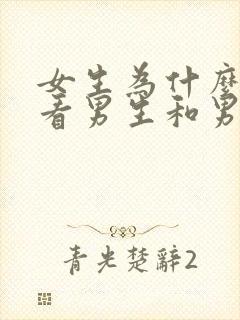 女生為什麼
看男生和男
青光楚辭2